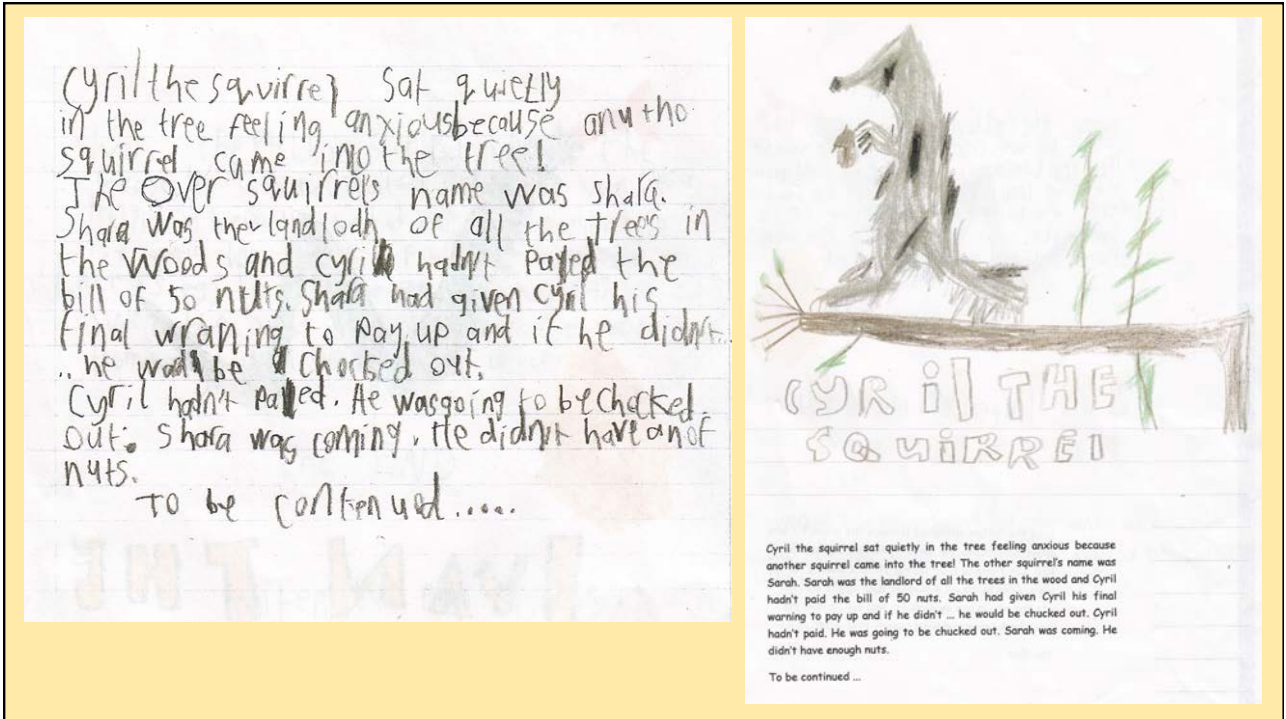 Cyril the squirrel sat quietly
in the tree feeling anxious because anutho
squirrel came into the tree!
The Over squirrels name was shara.
Shara was the landlodh of all the trees in
the woods and cyril hadn't payed the
bill of 50 nuts. Shara had given Cyril his
final wraning to pay up and if he didn't...
.. he would be chocked out.
Cyril hadn't payed. He was going to be chocked
out. Shara was coming. He didn't have anof
nuts.
To be contienued.....
CYRil THE
SQUiRREl
Cyril the squirrel sat quietly in the tree feeling anxious because
another squirrel came into the tree! The other squirrel's name was
Sarah. Sarah was the landlord of all the trees in the wood and Cyril
hadn't paid the bill of 50 nuts. Sarah had given Cyril his final
warning to pay up and if he didn't ... he would be chucked out. Cyril
hadn't paid. He was going to be chucked out. Sarah was coming. He
didn't have enough nuts.
To be continued ...